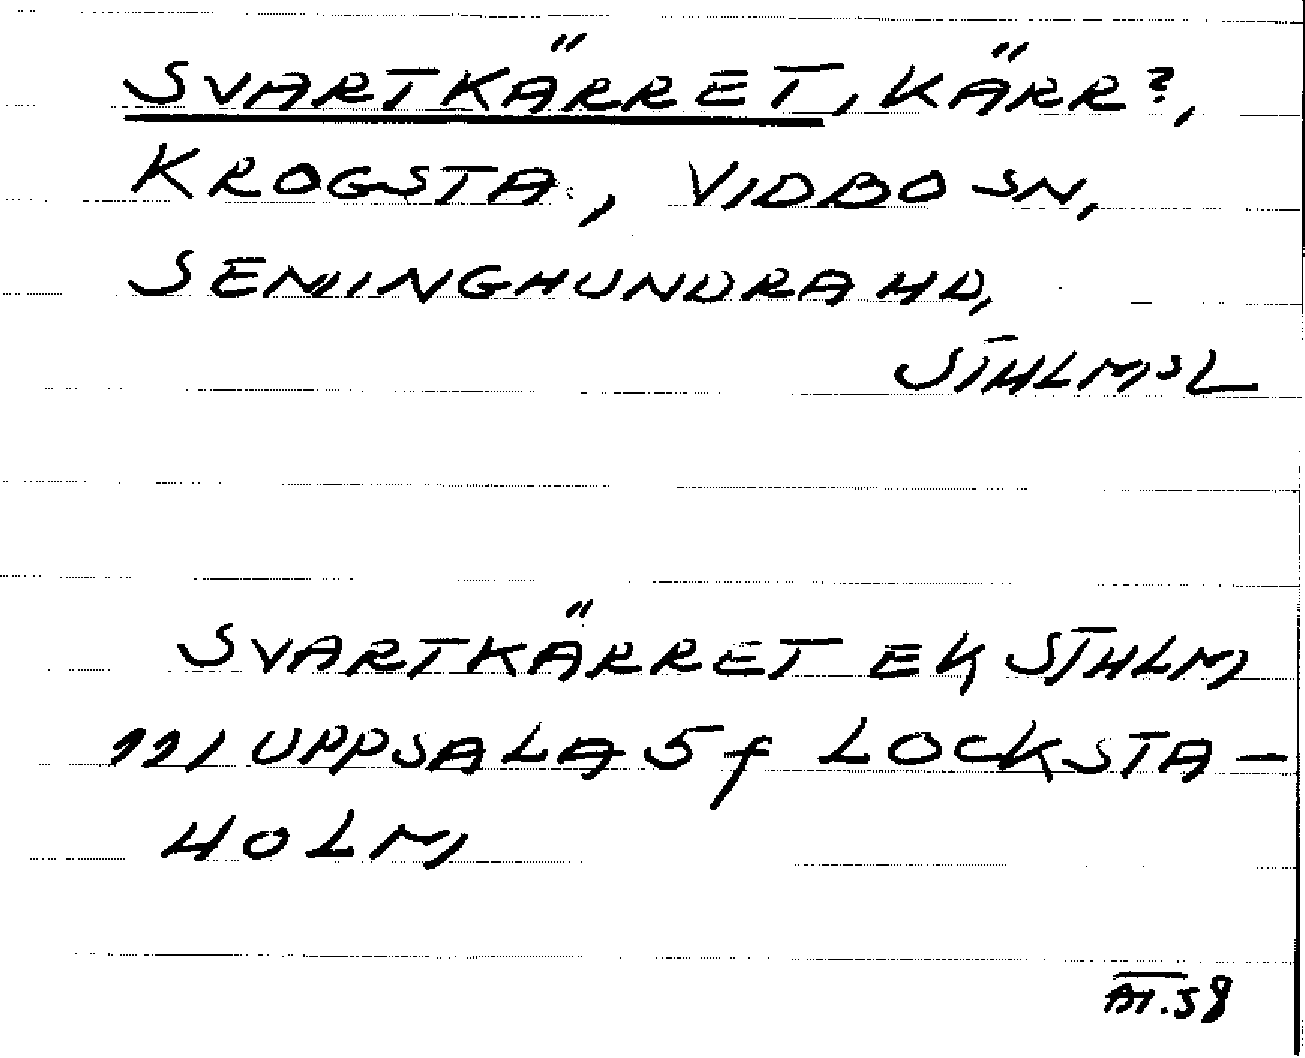 SVARTKÄRRET, KÄRR?,
KROGSTA, VIDBO SN,
SEMINGHUNDRA HD,
STHLMSL
SVARTKÄRRET EK STHLM
111 UPPSALA 5f LOCKSTA-
HOLM
AT.58